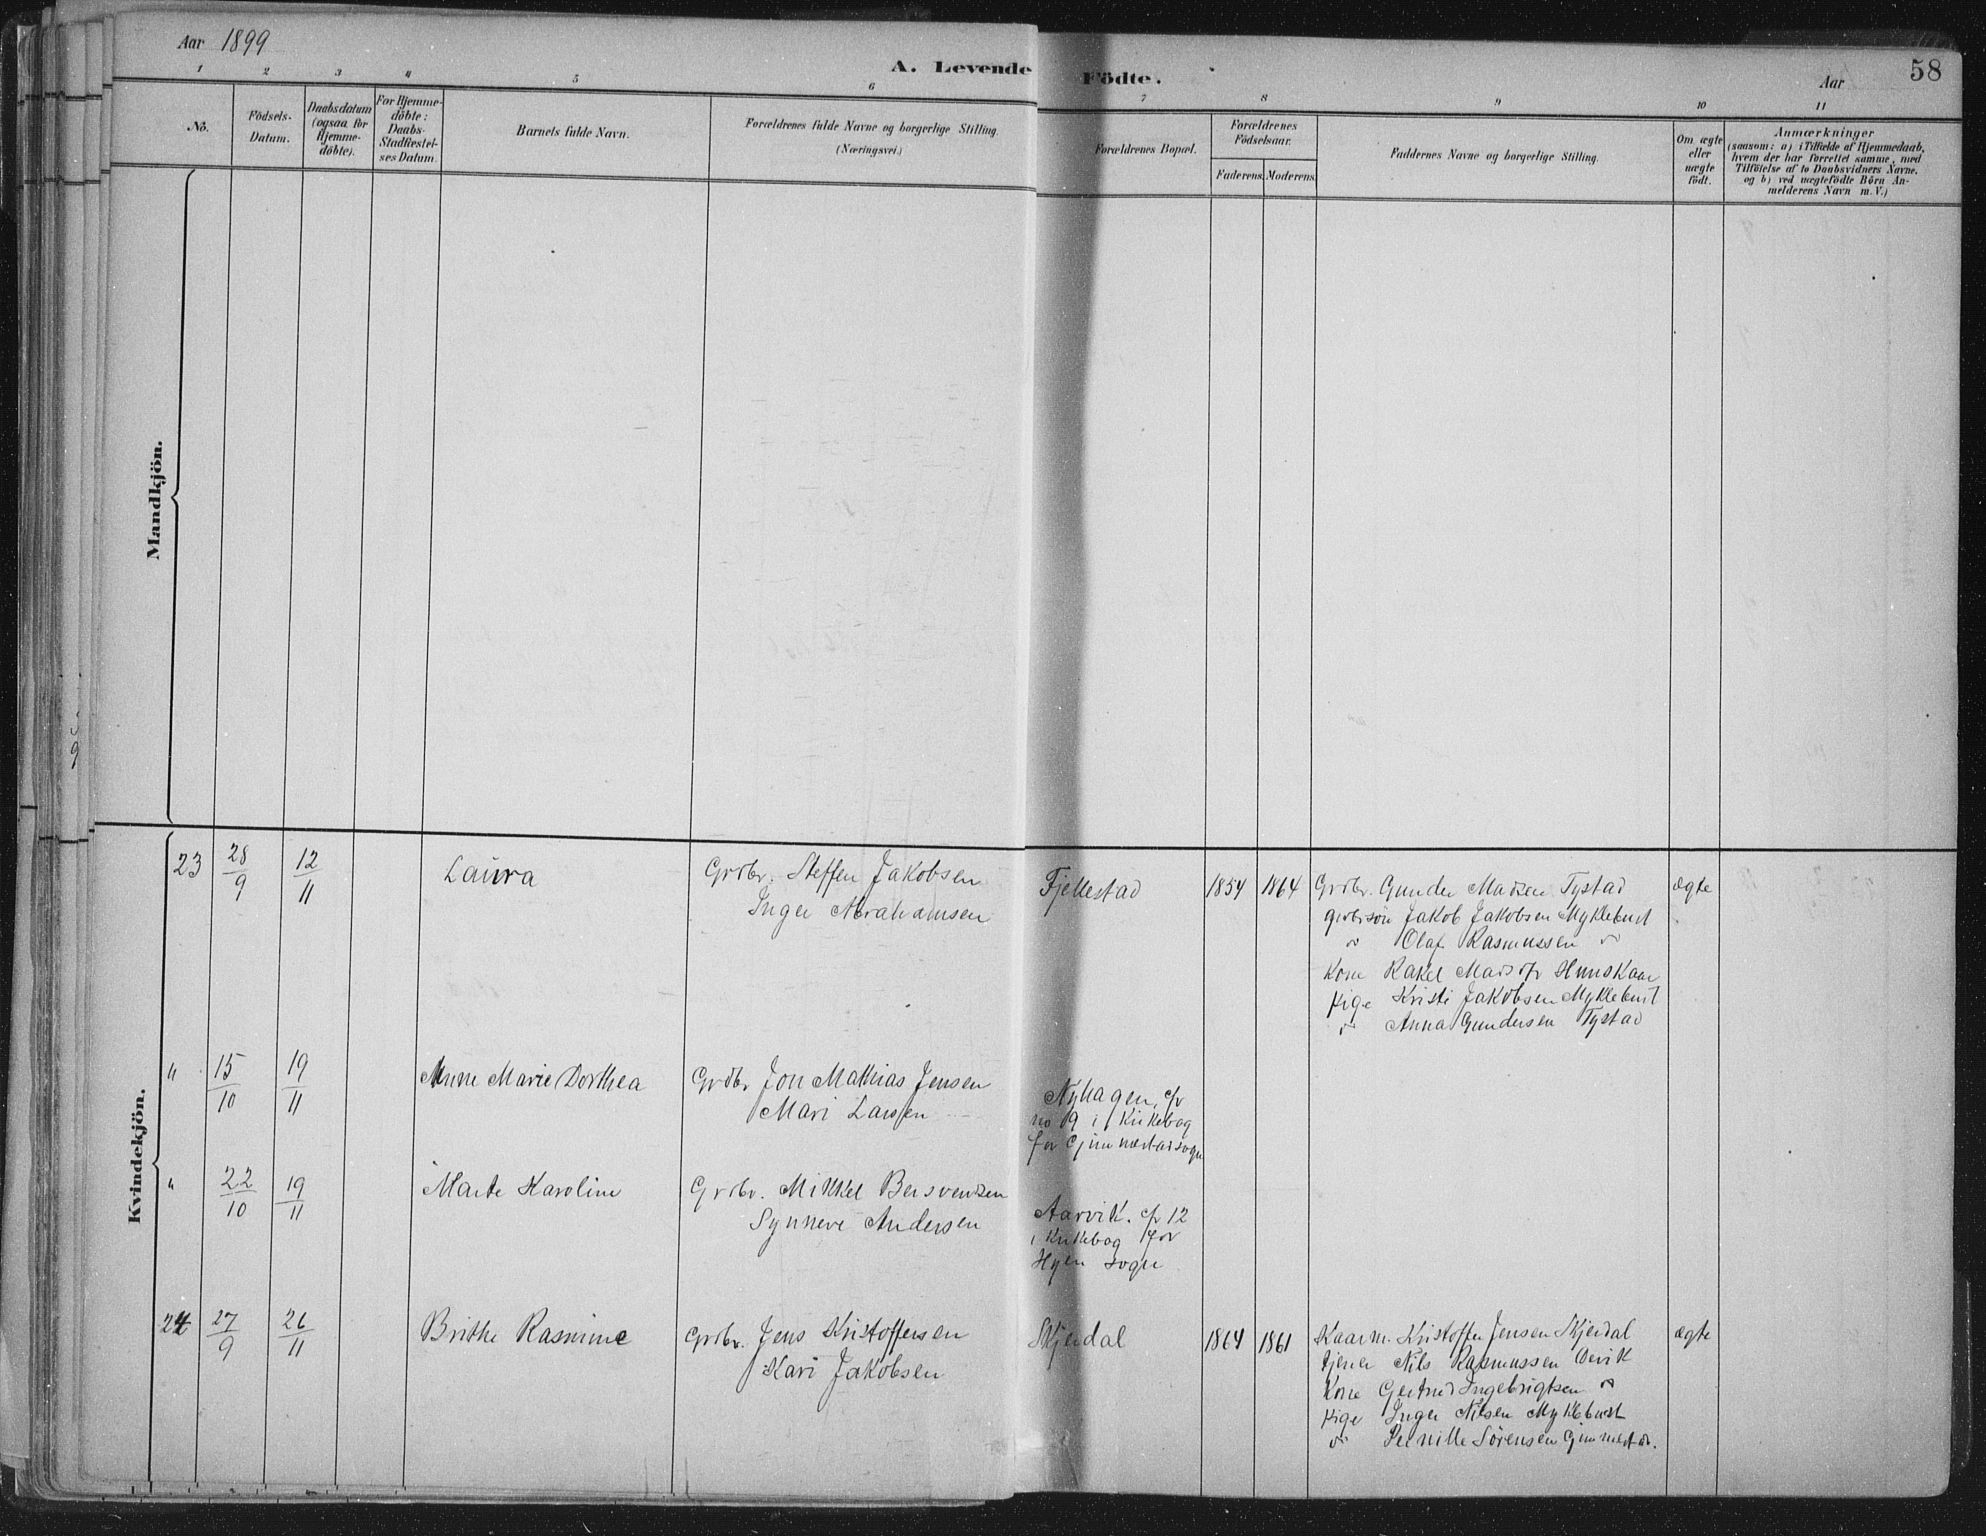 Aar 1899
A. Levende Födte.
Aar
58
1 2 3 4 5 6 7 8 9 10 11
No.
Födsels-
Datum.
Daabsdatum
(ogsaa for
Hjemme-
döbte).
For Hjemme-
döbte:
Daabs-
Stadfæstel-
ses Datum.
Barnets fulde Navn.
Forældrenes fulde Navne og borgerlige Stilling.
(Næringsvei.)
Forældrenes Bopæl.
Forældrenes
Födselsaar.
Faderens. Moderens.
Faddernes Navne og borgerlige Stilling.
Om ægte
eller
uægte
födt.
Anmærkninger
(saasom: a) i Tilfælde af Hjemmedaab,
hvem der har forrettet samme, med
Tilföielse af to Daabsvidners Navne,
og b) ved uægtefödte Börn An-
melderens Navn m. V.)
Mandkjön.
Kvindekjön.
23 28/9 12/11 Laura
Grdbr. Steffen Jakobsen
Inger Abrahamsen
Fjellestad 1854 1864
Grdbr. Gunder Madsen Tystad
Grdbrsön Jakob Jakobsen Myklebust
" Olaf Rasmussen "
Kone Rakel Madsdtr Hunskaar
Pige Kristi Jakobsen Myklebust
" Anna Gundersen Tystad
ægte
" 15/10 19/11 Anne Marie Dorthea
Grdbr Jon Mathias Jensen
Mari Larsen
Nyhagen, cfr
no 19 i Kirkebog
for Gimmestadsogn
" 22/10 19/11 Marte Karoline
Grdbr. Mikkel Bersvendsen
Synneve Andersen
Aarvik. cfr 12
i Kirkebog for
Hyen sogn
24 27/9 26/11 Brithe Rasmine
Grdbr. Jens Kristoffersen
Kari Jakobsen
Skjerdal 1864 1861
Kaarm. Kristoffer Jensen Skjerdal
Tjener Nils Rasmussen
Kone Gjertrud Ingebrigtsen "
Pige Inger Nilsen Myklebust
" Pernille Sörensen Gimmestad.
ægte